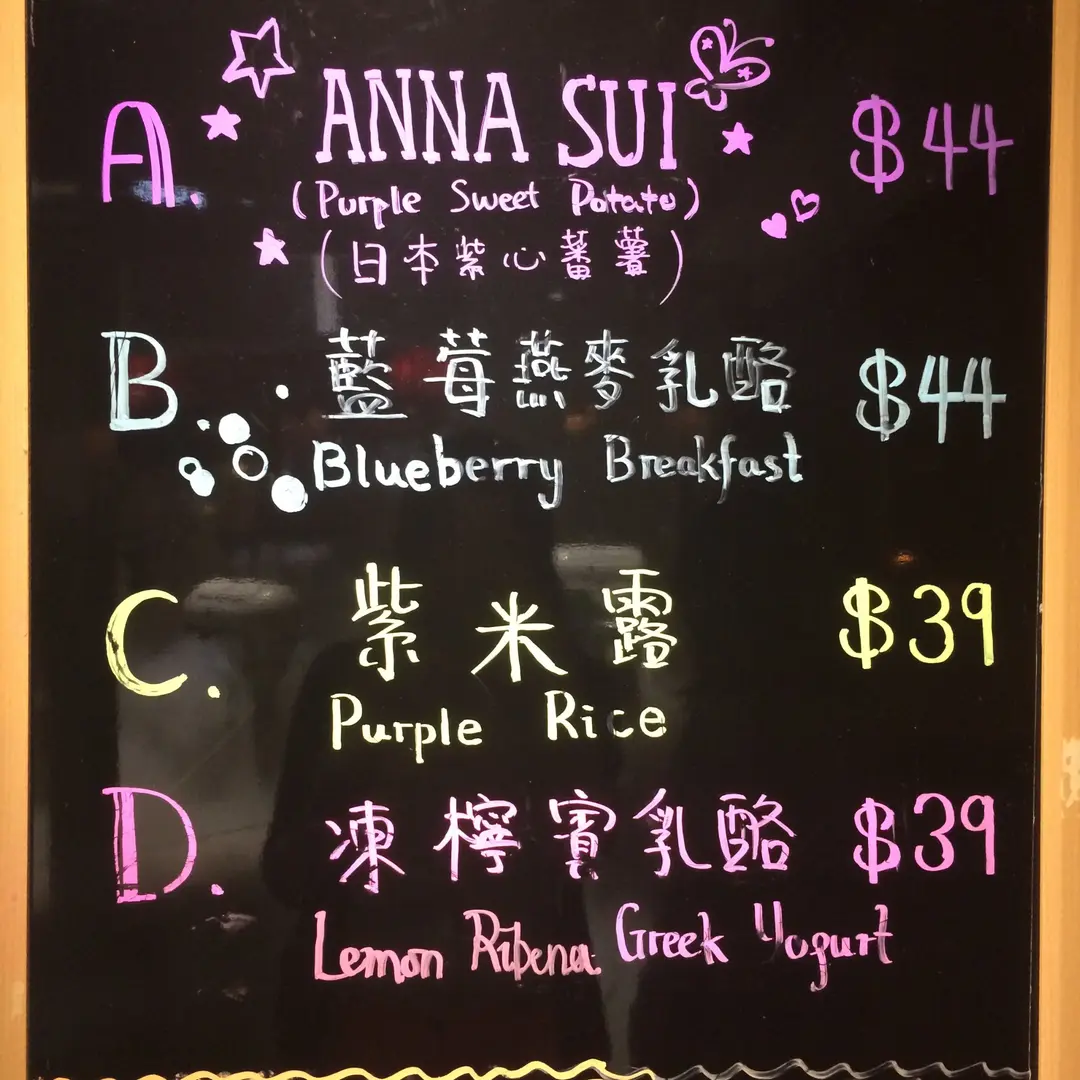 A. ANNA SUI $44
(Purple Sweet Potato)
(日本紫心蕃薯)
B. 藍莓燕麥乳酪 $44
Blueberry Breakfast
C. 紫米露 $39
Purple Rice
D. 凍檸賓乳酪 $39
Lemon Ribena Greek Yogurt